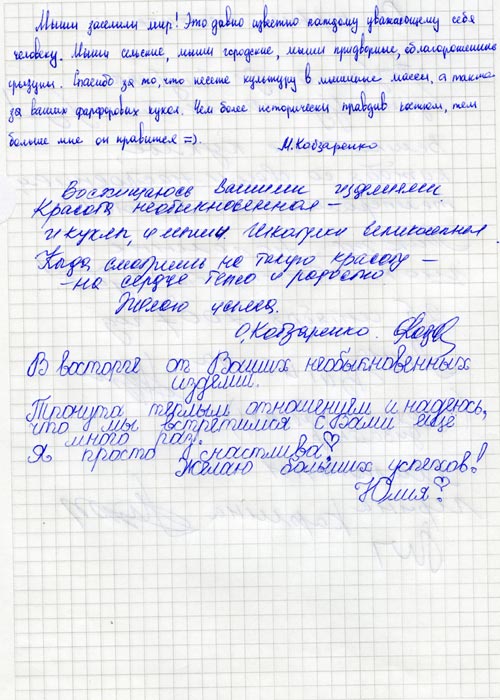 Мыши заселили мир! Это давно известно каждому уважающему себя
человеку. Мыши сельские, мыши городские, мыши придворные, облагороженные
грызуны. Спасибо за то, что несете культуру в мышиные массы, а также
за ваших фарфоровых кукол. Чем более исторически правдив костюм, тем
больше мне он нравится =).
М. Кобзаренко
Восхищаюсь Вашими изделиями.
Красота необыкновенная –
и куклы, и мыши Шкатулки великолепная.
Когда смотришь на такую красоту –
– на сердце тепло и радостно
Желаю успеха.
О. Кобзаренко.
В восторге от Ваших необыкновенных
изделий.
Тронута теплым отношением и надеюсь,
что мы встретимся с Вами еще
много раз.
Я просто счастлива!
Желаю больших успехов!
Юлия